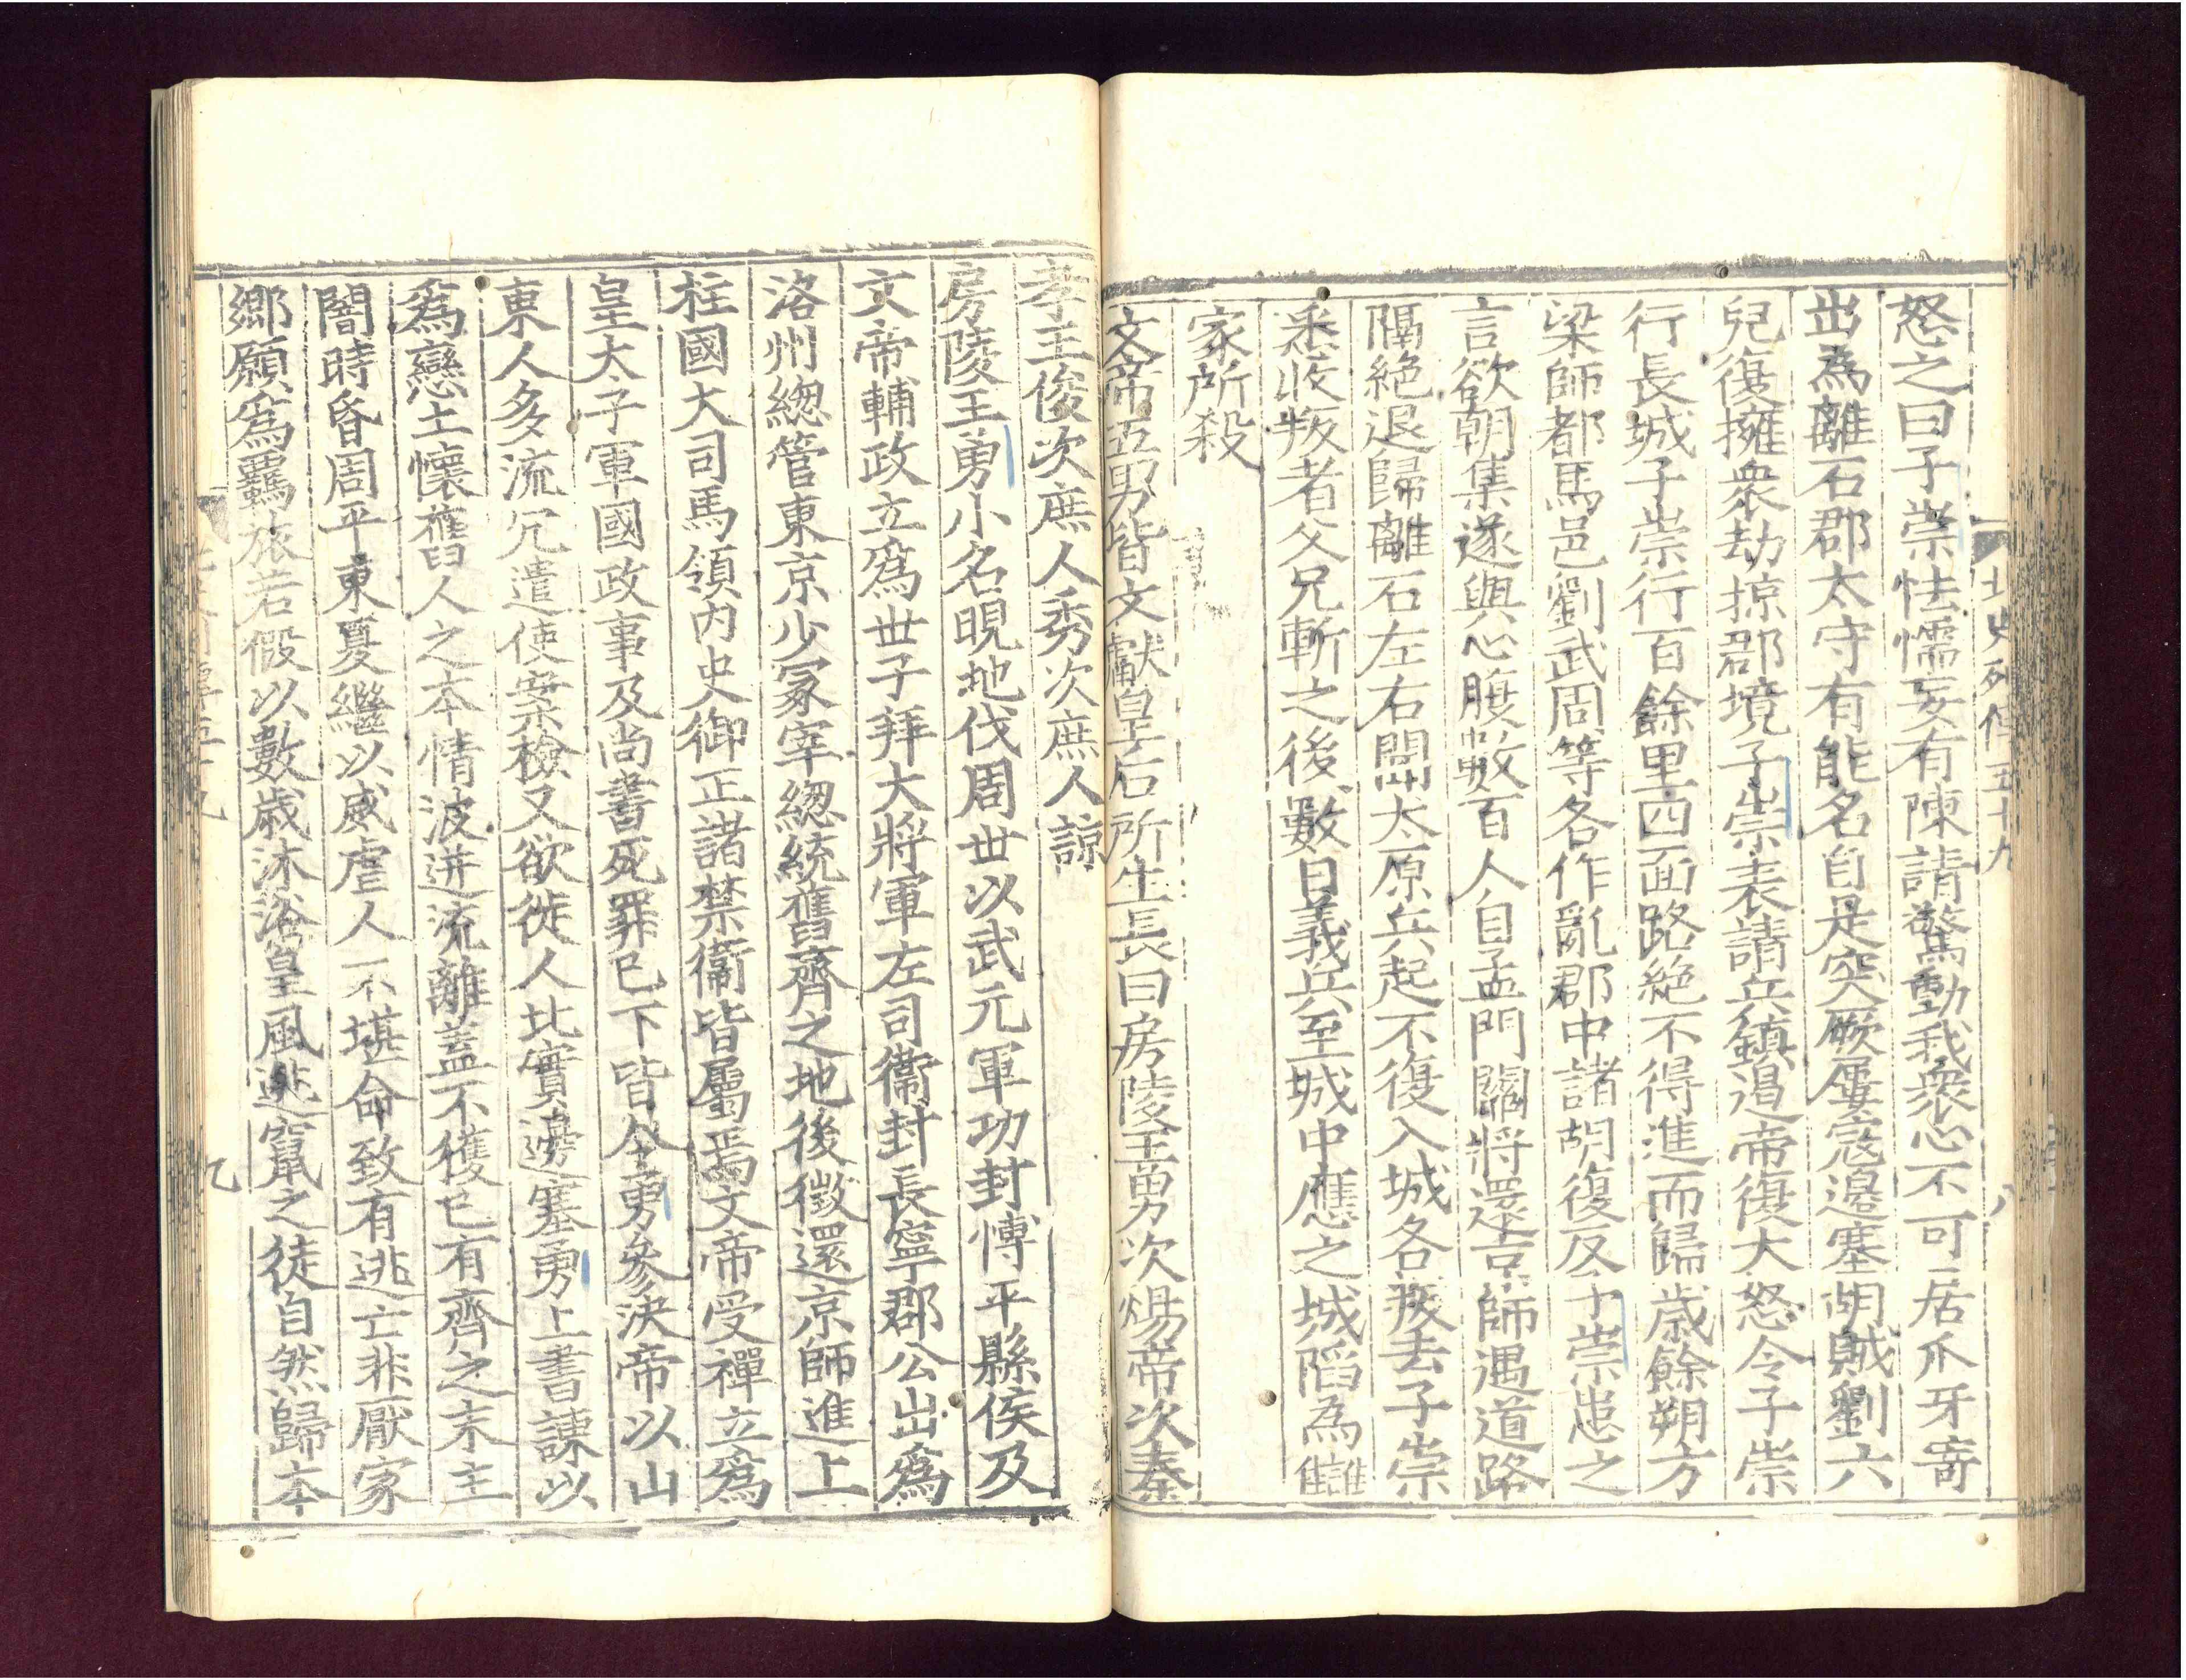 北史列傳五十九　八
怒之曰子崇怯懦妄有陳請驚動我衆心不可居爪牙寄
出為離石郡太守有能名自是突厥屢寇邉塞胡賊劉六
兒復擁衆劫掠郡境子崇表請兵鎮遏帝復大怒令子崇
行長城子崇行百餘里四面路絶不得進而歸歳餘朔方
梁師都馬邑劉武周等各作亂郡中諸胡復反子崇患之
言欲朝集遂與心腹數百人自孟門關將還京師遇道路
隔絶退歸離石左右聞太原兵起不復入城各叛去子崇
悉收叛者父兄斬之後數日義兵至城中應之城陷為讎
家所殺
文帝五男皆文獻皇后所生長曰房陵王勇次煬帝次秦
孝王俊次庶人秀次庶人諒
房陵王勇小名睍地伐周世以武元軍功封愽平縣侯及
文帝輔政立爲世子拜大將軍左司衞封長寧郡公出爲
洛州緫管東京少冢宰緫統舊齊之地後徵還京師進上
柱國大司馬領内史御正諸禁衞皆屬焉文帝受禪立爲
皇太子軍國政事及尚書死罪已下皆令勇參決帝以山
東人多流冗遣使案檢又欲徙人北實邊塞勇上書諫以
爲戀土懷舊人之本情波迸流離蓋不獲已有齊之末主
闇時昏周平東夏繼以威虐人不堪命致有逃亡非厭家
鄉願爲羈旅若假以數歳沐浴皇風逃竄之徒自然歸本
九